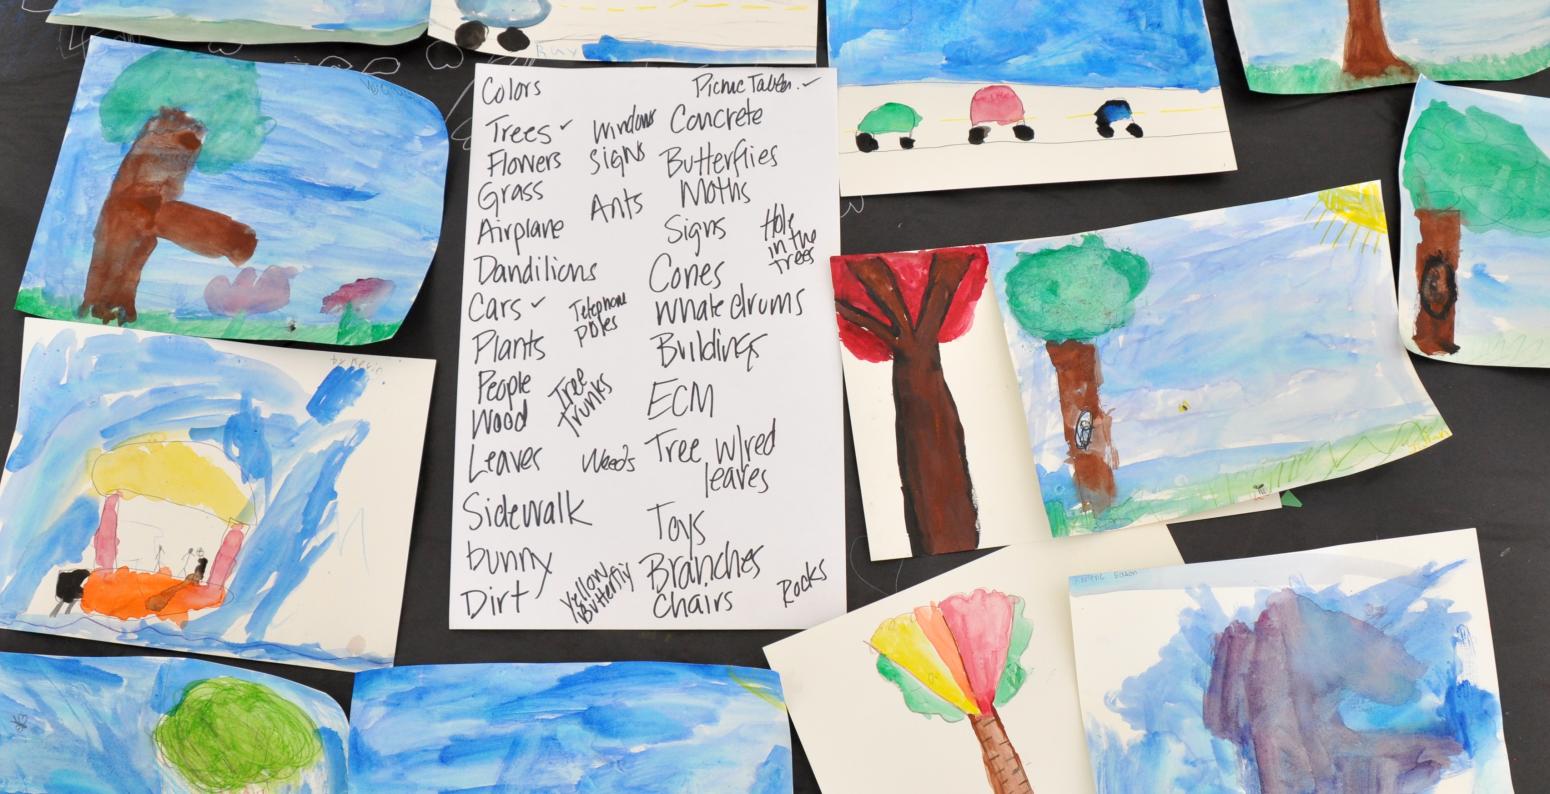 Colors
Trees ✓
Flowers
Grass
Airplane
Dandilions
Cars ✓
Plants
People
Wood
Leaves
Sidewalk
bunny
Dirt
Windows
Signs
Ants
Telephone
poles
Tree
trunks
Weeds
Yellow
Butterfly
Picnic Tables ✓
Concrete
Butterflies
Moths
Signs
Hole
in the
trees
Cones
Whale drums
Buildings
ECM
Tree w/red
leaves
Toys
Branches
Chairs
Rocks